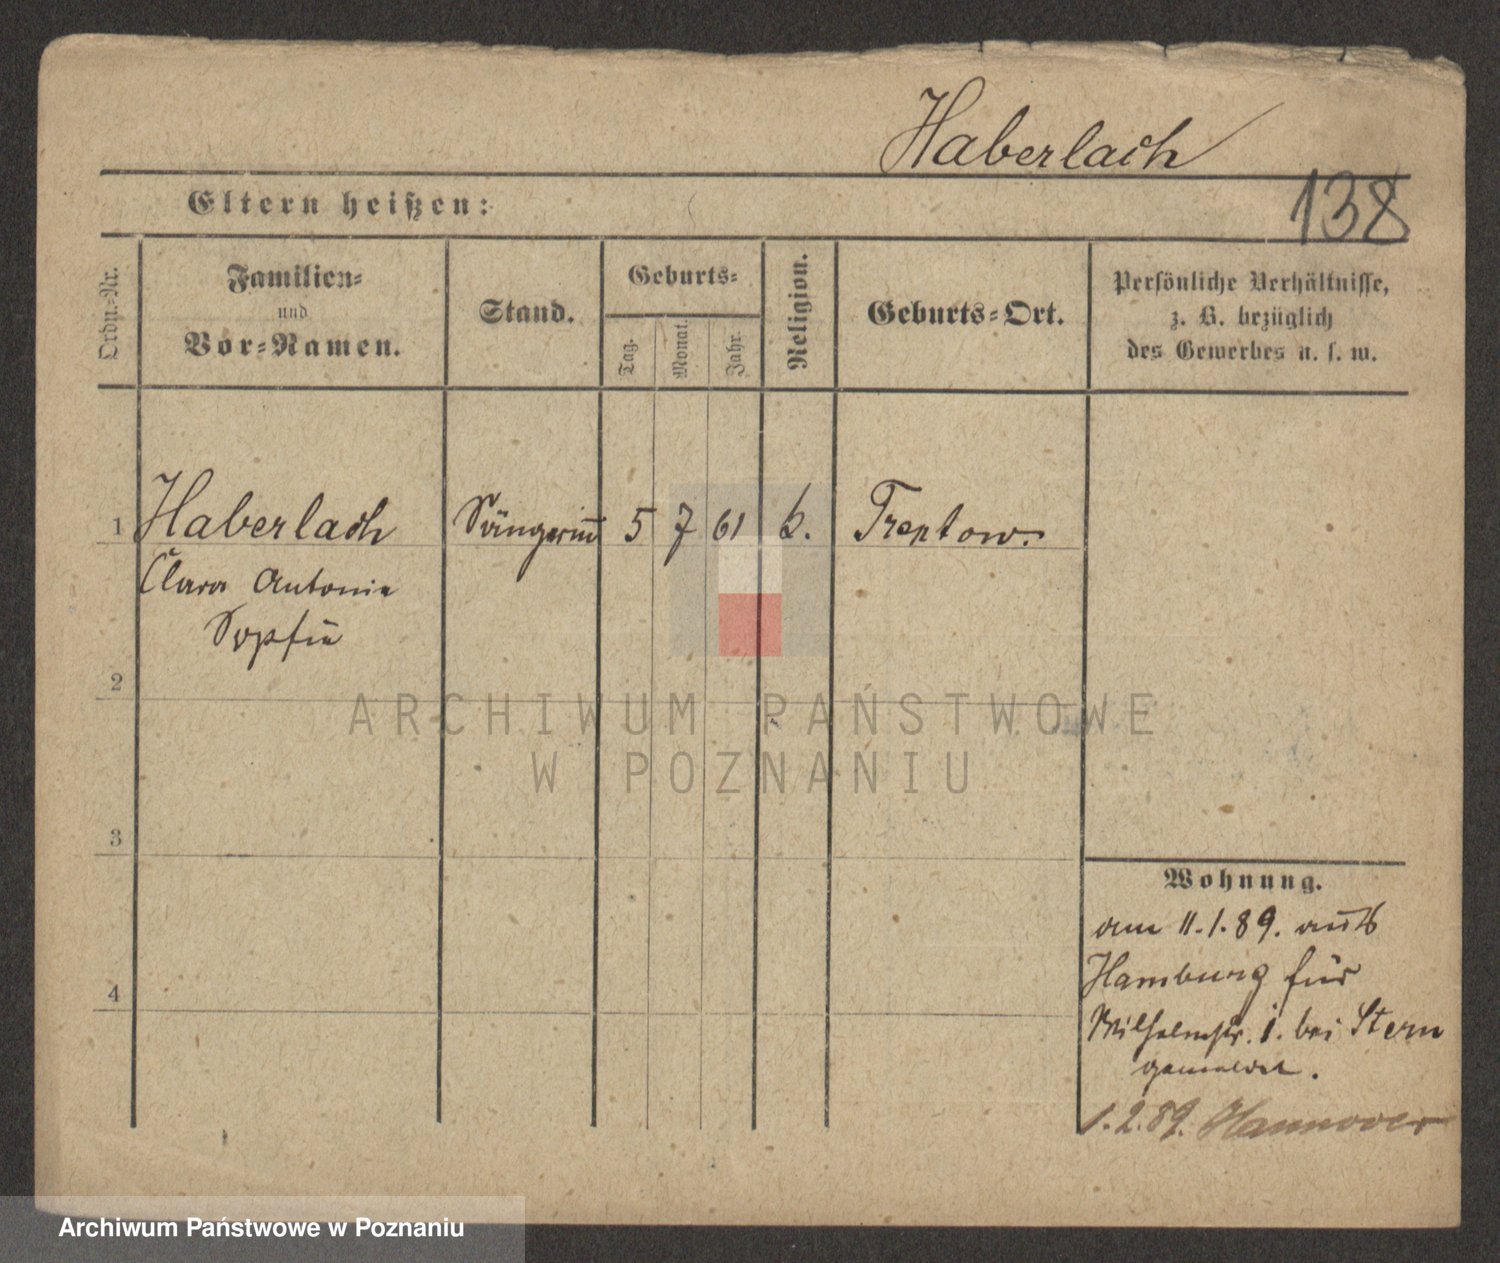 Haberlach
138
Eltern heißen:
Ordn.-Nr.
Familien-
und
Vor-Namen.
Stand.
Geburts-
Tag.
Monat.
Jahr.
Religion.
Geburts-Ort.
Persönliche Verhältnisse,
z. B. bezüglich
des Gewerbes u. s. w.
1 Haberlach Sängerin 5 7 61 k. Treptow.
Clara Antonie
Sophie
2
3
4
Wohnung.
am 11.1.89. aus
Hamburg für
Wilhelmstr. 1. bei Stern
gemeldet.
1.2.89. Hannover
ARCHIWUM PAŃSTWOWE
W POZNANIU
Archiwum Państwowe w Poznaniu